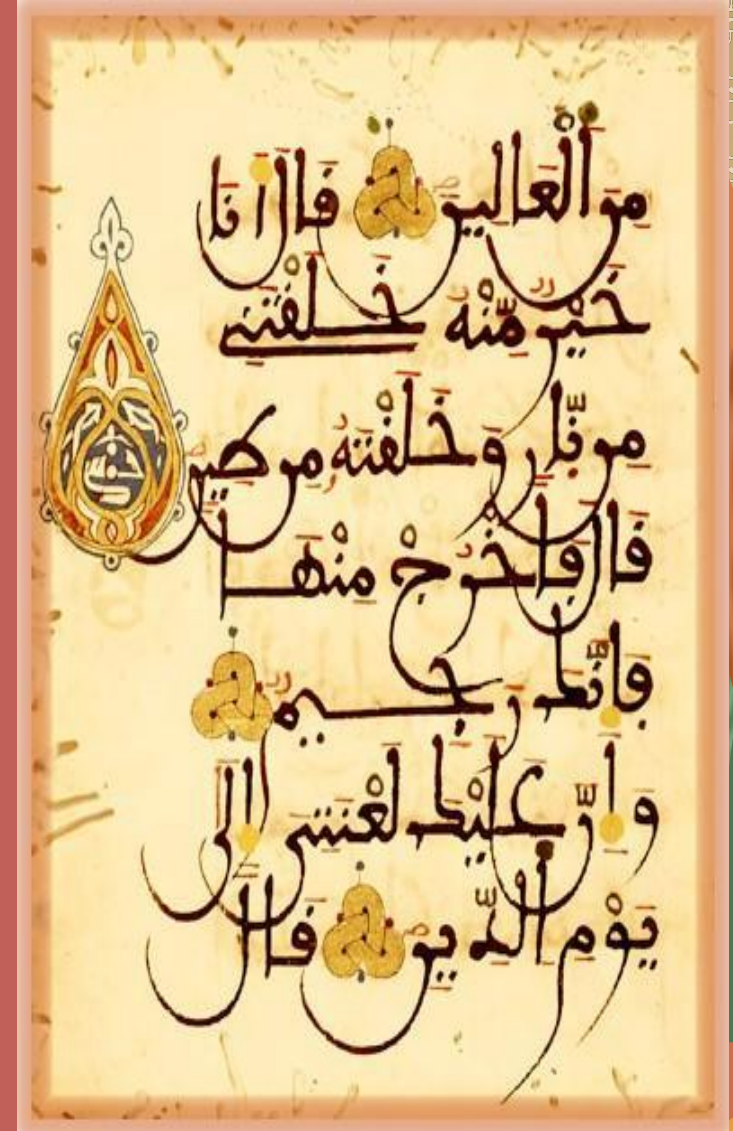 مِنَ اَ۬لْعَالِينَ قَالَ أَنَا
خَيْرٌ مِّنْهُ خَلَقْتَنِے
مِن نّارٍ وَخَلَقْتَهُۥ مِن طِينٍ
قَالَ فَاخْرُجْ مِنْهَا
فَإِنَّكَ رَجِيمٌ
وَإِنَّ عَلَيْكَ لَعْنَتِي إِلَىٰ
يَوْمِ اِ۬لدِّينِ قَالَ